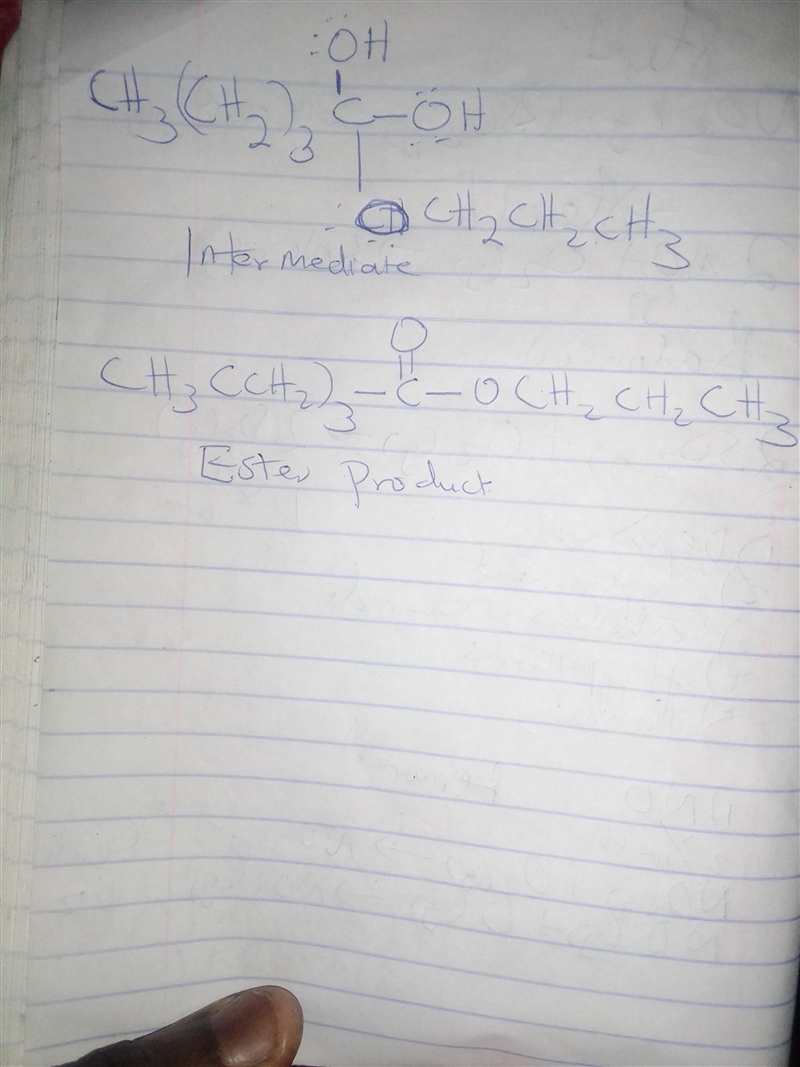 :OH
CH3(CH2)3 C-OH
CH2CH2CH3
Intermediate
O
CH3(CH2)3-C-OCH2CH2CH3
Ester Product